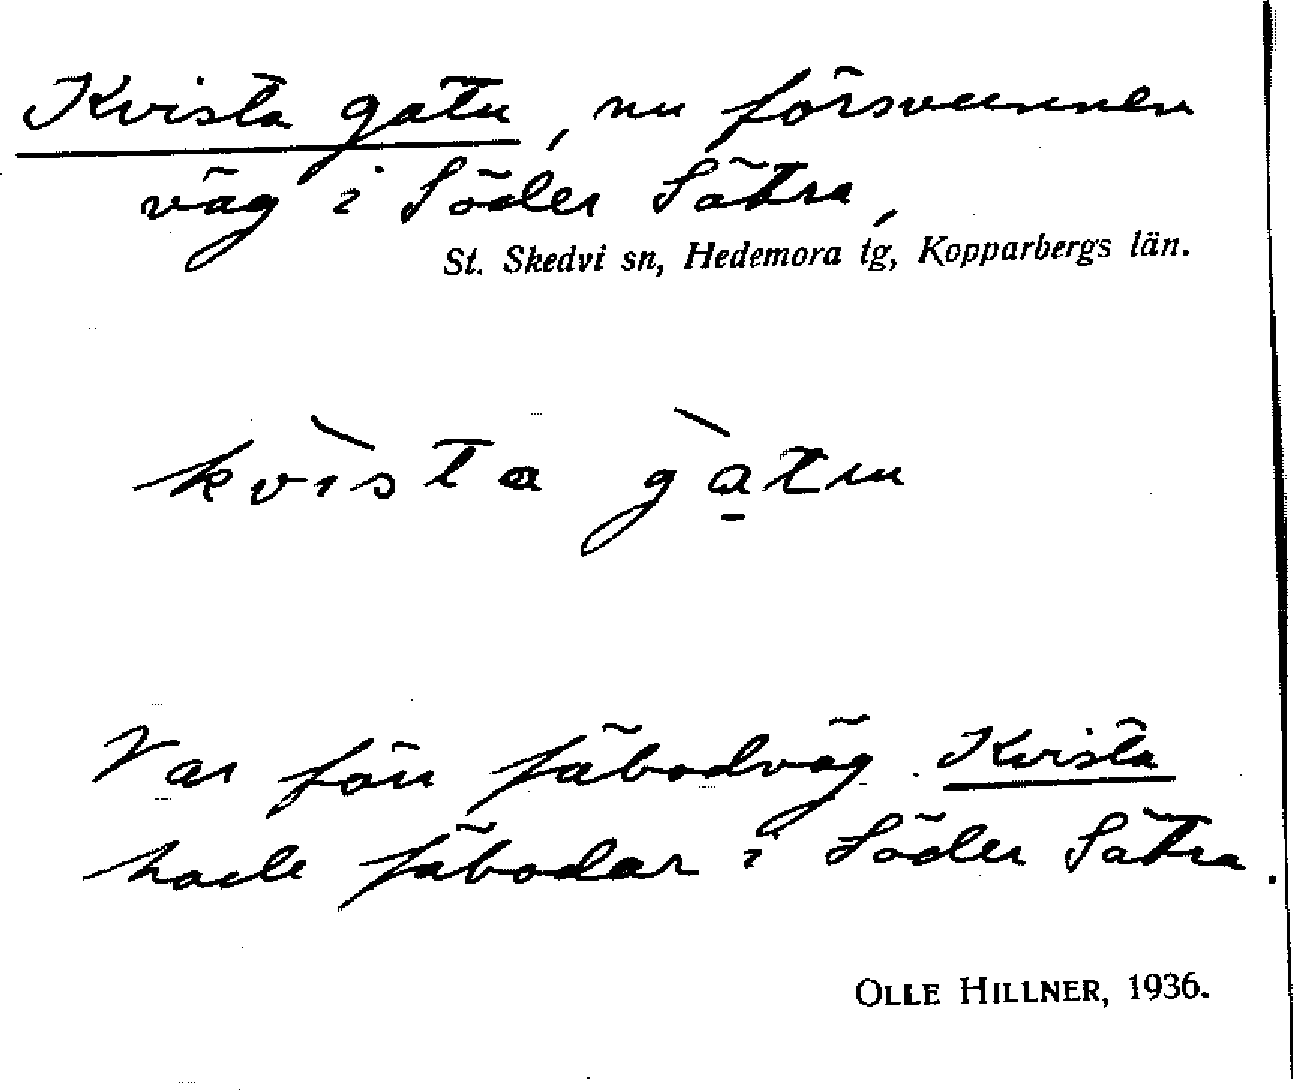 Kvista gatu, nu försvunnen
väg i Söder Sätra,
St. Skedvi sn, Hedemora tg, Kopparbergs län.
kvìsta gàtu
Var förr fäbodväg. Kvista
hade fäbodar i Söder Sätra.
OLLE HILLNER, 1936.